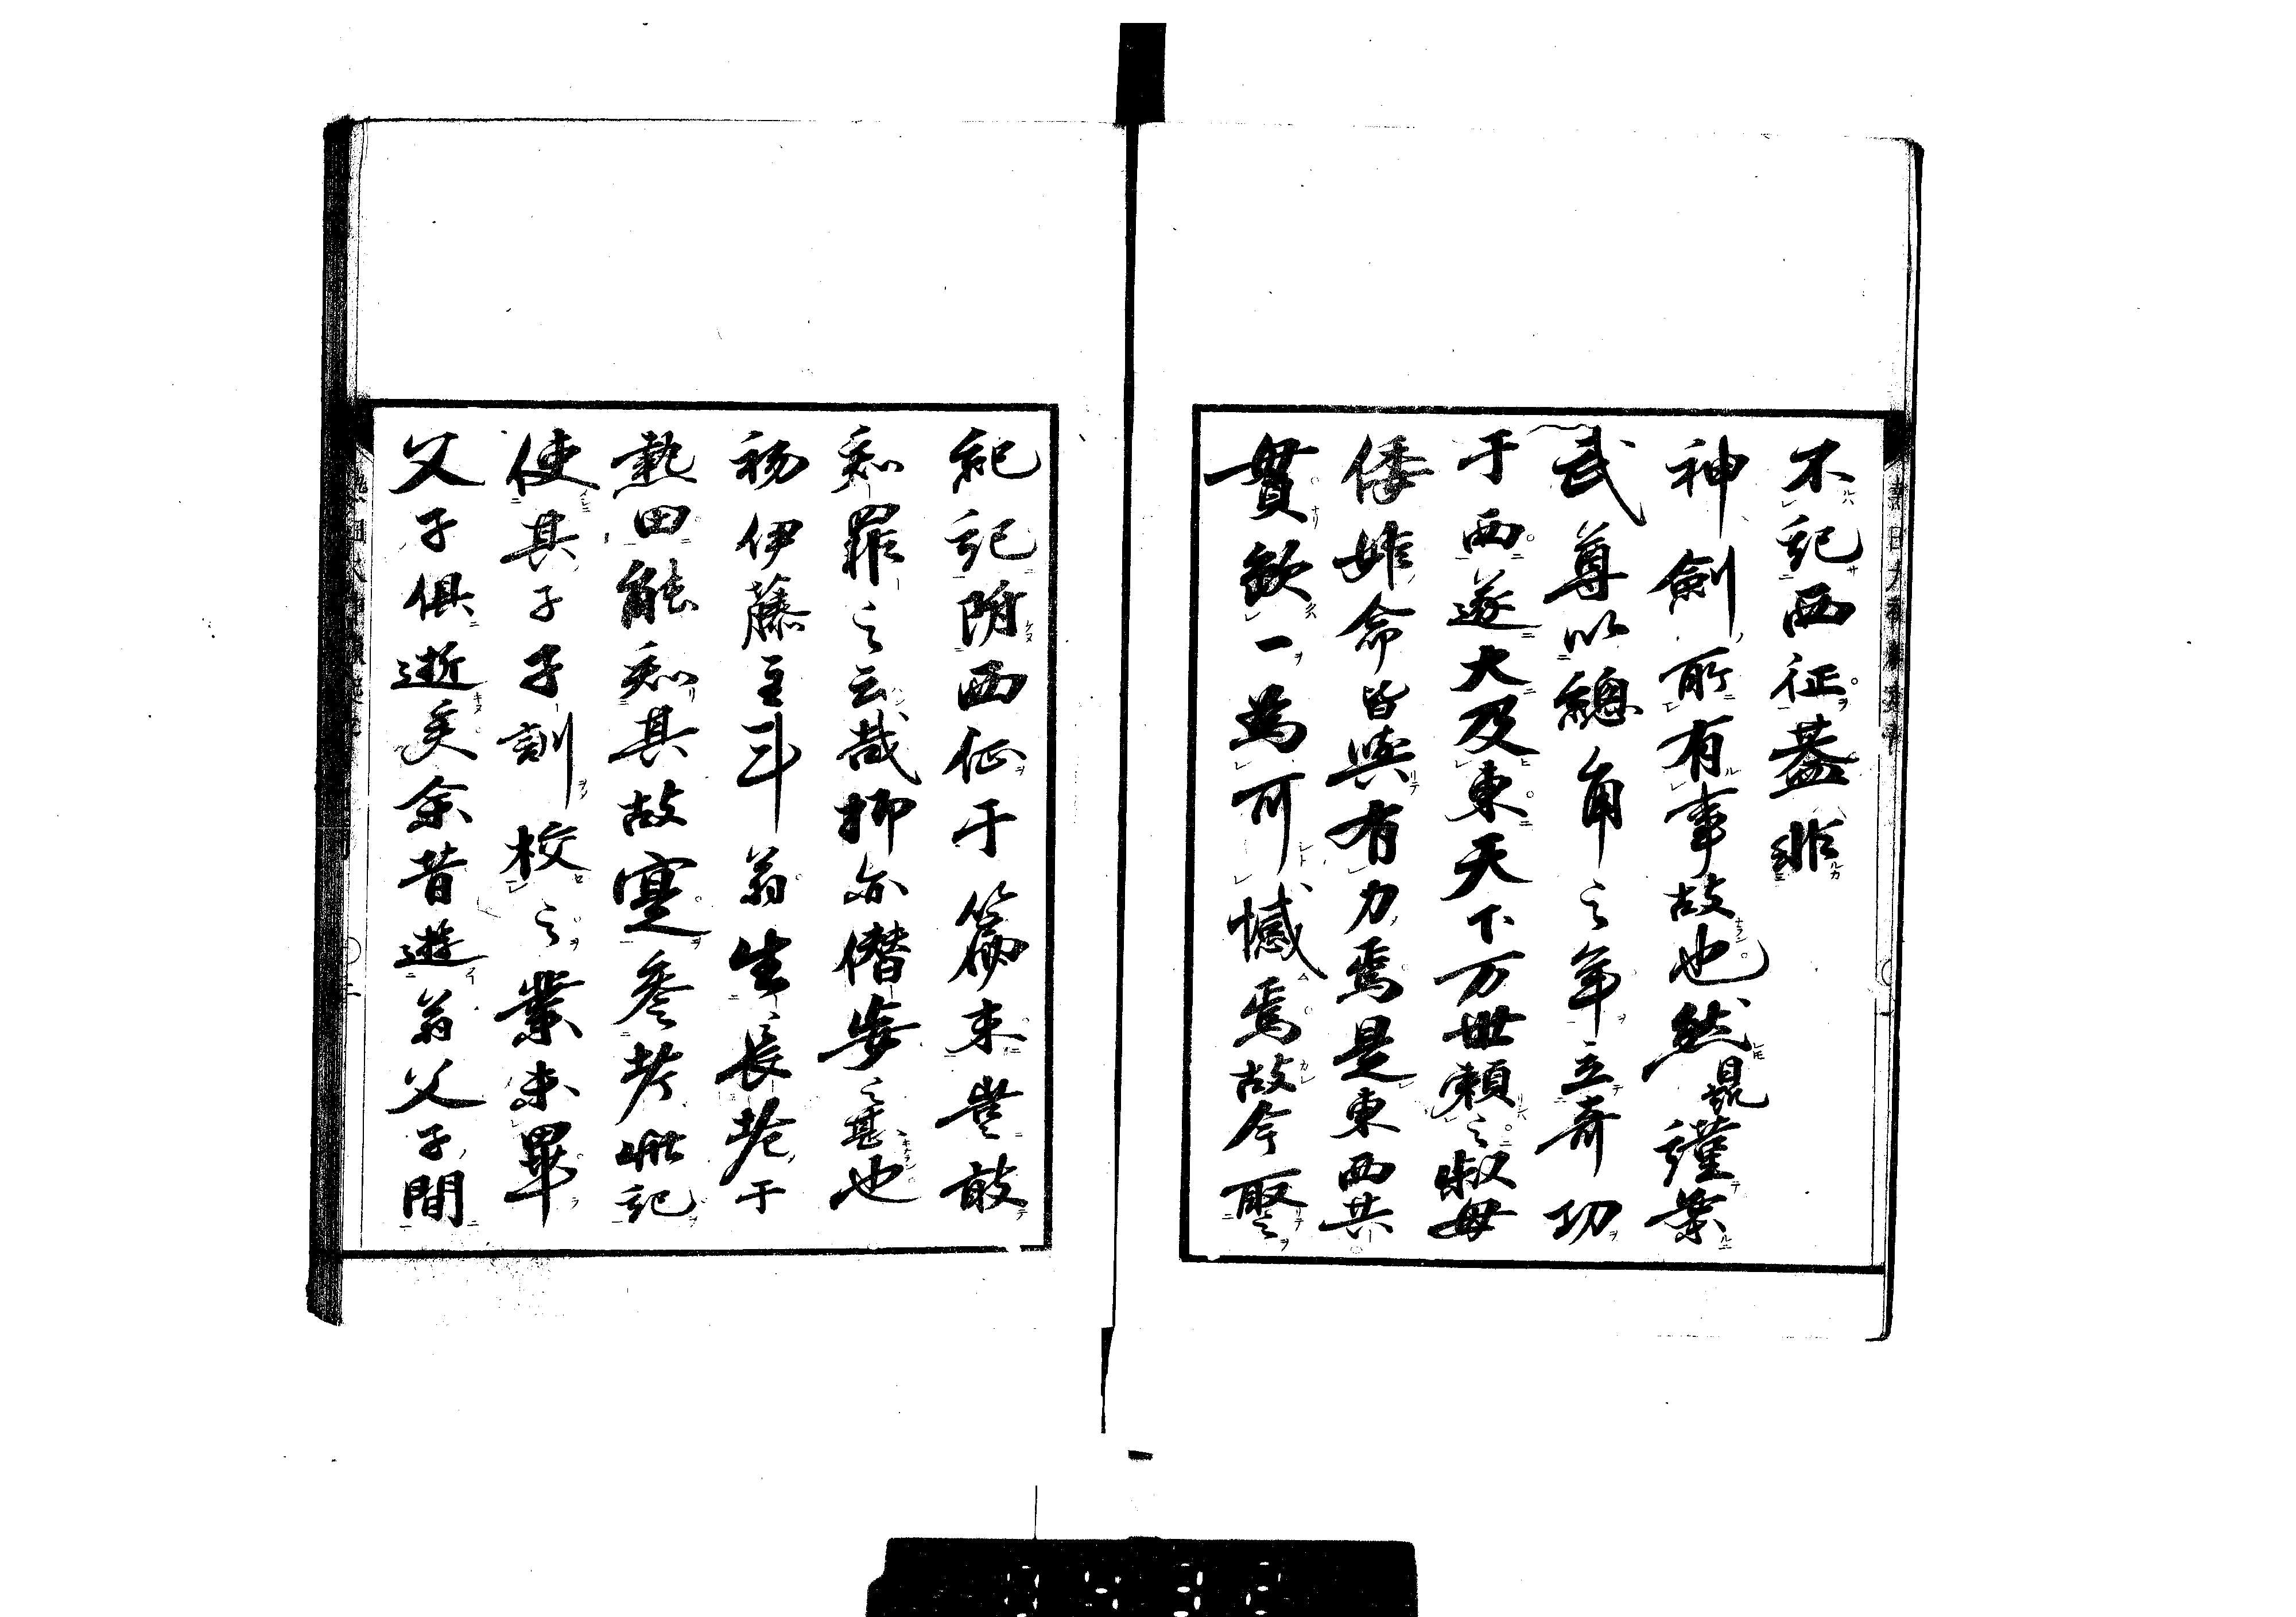 不記西征蓋非
神劍所有事故也然晁謹案
武尊以總角之年立奇功
于西遂大及東天下万世賴之叔母
倭姬命皆與有力焉是東西共
貫欽一為可憾焉故今竪
紀記附西征于篇末豈敢
知罪之云哉抑亦僭妄之甚也
初伊藤主斗翁生長於于
熱田能知其故寔參考此記
使其子子訓校之業未畢
父子俱逝矣余昔遊翁父子間